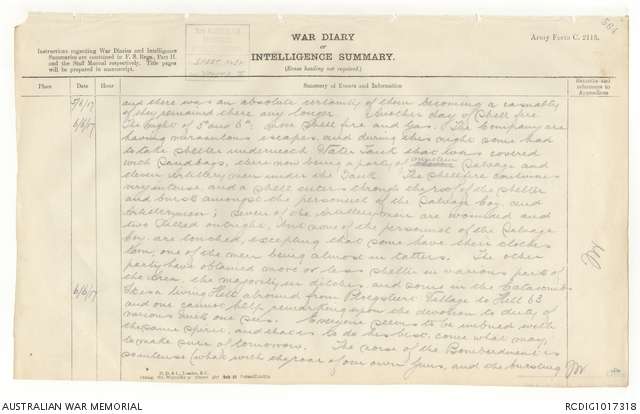 WAR DIARY
or
INTELLIGENCE SUMMARY.
(Erase heading not required.)
Army Form C. 2118.
Instructions regarding War Diaries and Intelligence
Summaries are contained in F. S. Regs., Part II.
and the Staff Manual respectively. Title pages
will be prepared in manuscript.
Place Date Hour Summary of Events and Information Remarks and references to Appendices
5/6/17 and there was an absolute certainty of them becoming a casualty
if they remained there any longer. Another day of shell fire
6/6/17 The night of 5th and 6th: more shell fire and gas. The Company are
having marvellous escapes, and during this night some had
to take shelter underneath Water Tank that was covered
with Sandbags, there now being a party of Salvage and
eleven Artillery men under the Tank. The shellfire continues
very intense and a shell enters through the roof of the shelter
and burst amongst the personnel of the Salvage Coy. and
Artillerymen; seven of the Artillery men are wounded and
two killed outright, but none of the personnel of the Salvage
Coy. are touched, excepting that some have their clothes
torn, one of the men being almost in tatters. The other
party have obtained more or less shelter in various parts of
the area, the majority in ditches and some in the Catacombs.
6/6/17 It is a living Hell around from Ploegsteert Village to Hill 63
and one cannot help remarking upon the devotion to duty of
various units one sees. Everyone seems to be imbued with
the same spirit, and that is to do his best, come what may,
to make sure of tomorrow. The noise of the Bombardment is
so intense (what with the roar of our own guns, and the bursting
AUSTRALIAN WAR MEMORIAL
RCDIG1017318